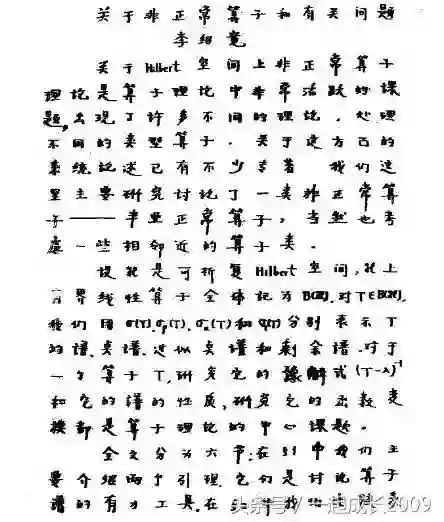 关于非正常算子和有关问题
李绍宽
关于Hilbert空间上非正常算子
理论是算子理论中非常活跃的课
题,出现了许多不同的理论,处理
不同的类型算子.关于这方面的
系统论述已有不少专著 我们这
里主要研究讨论了一类非正常算
子——半亚正常算子,当然也考
虑一些相邻近的算子类.
设H是可析复Hilbert空间,H上
有界线性算子全体记为B(H),对T∈B(H),
我们用σ(T),σp(T),σa(T)和 分别表示T
的谱,点谱,近似点谱和剩余谱.对于
一个算子T,研究它的豫解式(T-λ)⁻¹
和它的谱的性质,研究它的函数变
换都是算子理论的中心课题.
全文分为六节:在§1中我们主
要介绍两个引理,它们是讨论算子
谱的有力工具,在
头条号/一起成长2009